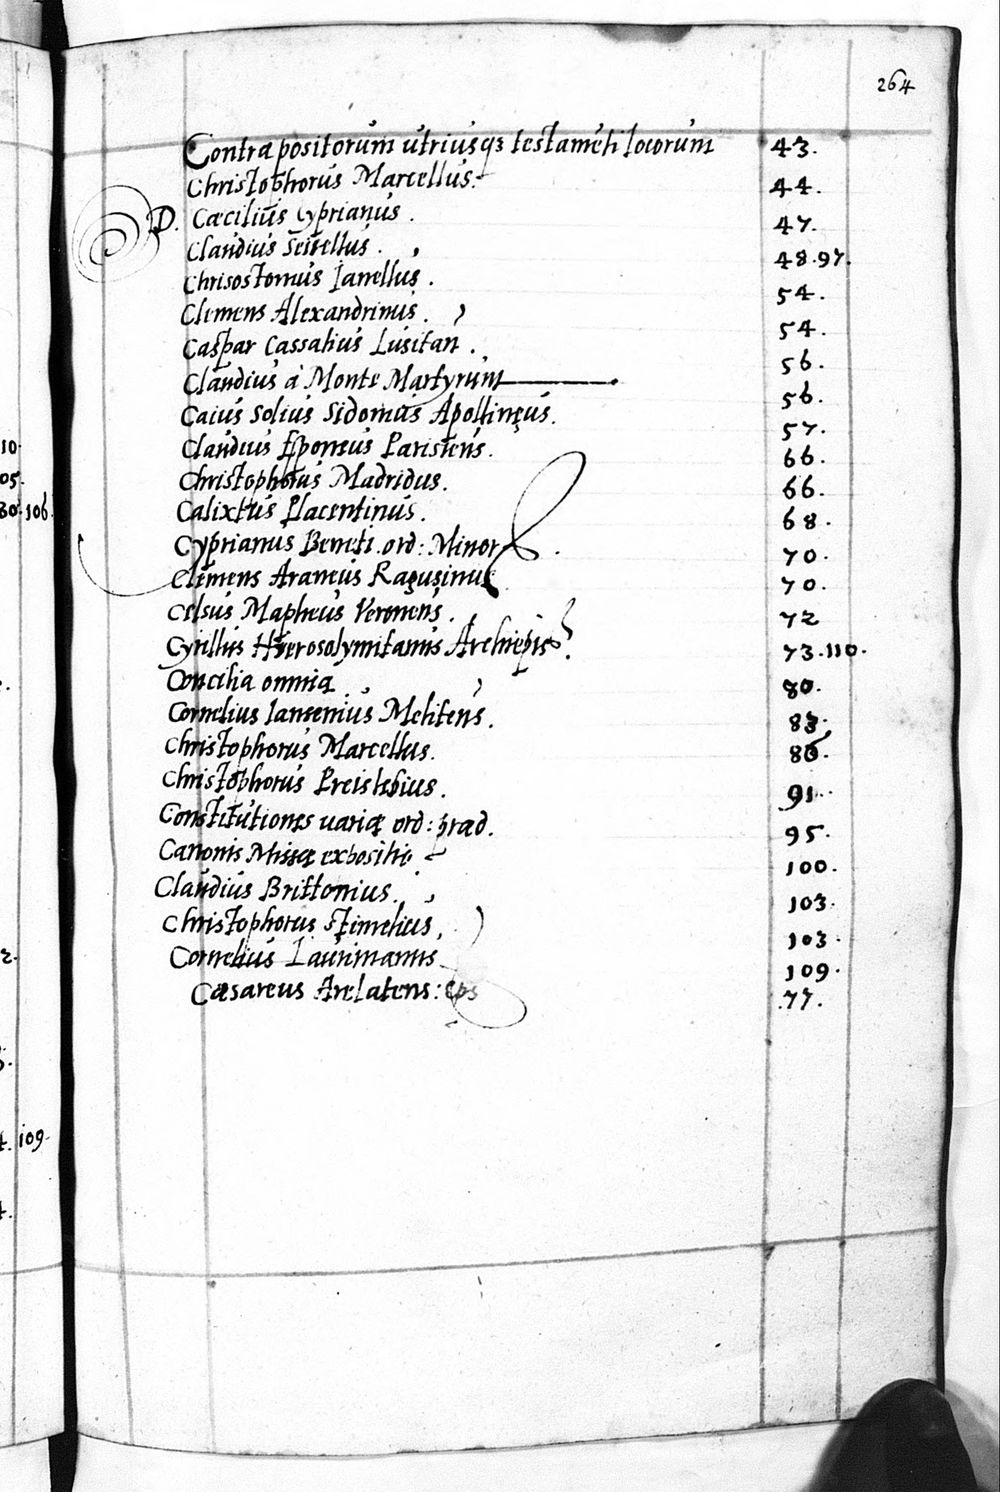 264
Contrapositorum utriusq3 testameti locorum 43.
Christophorus Marcellus. 44.
D. Cæcilius Cyprianus. 47.
Claudius Seisellus. 48.97.
Chrisostomus Ianellus. 54.
Clemens Alexandrinus. 54.
Caspar Cassalius Lusitan. 56.
Claudius à Monte Martyrum 56.
Caius Solius Sidonius Apollinęus. 57.
Claudius Esponeus Parisiens. 66.
Christophorus Madridus. 66.
Calixtus Placentinus. 68.
Cyprianus Beneti. ord: Minor. 70.
Clemens Araneus Ragusinus 70.
Celsus Mapheus Veronens. 72
Cyrillus Hierosolymitanus Archiepis. 73.110.
Concilia omnia 80.
Cornelius Iansenius Melitens. 83.
Christophorus Marcellus. 86.
Christophorus Preislebius. 91.
Constitutiones uariæ ord: præd. 95.
Canonis Missæ expositio 100.
Claudius Brittonius. 103.
Christophorus Stimelius, 103.
Cornelius Laurimanus 109.
Cæsareus Arelatens: eps 77.
10.
05.
80.106.
109.